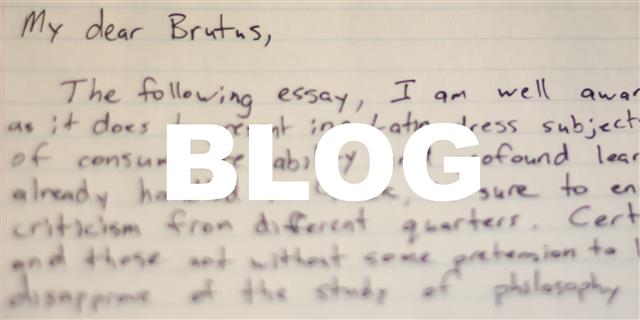 My dear Brutus,
The following essay, I am well awar
as it does dress subject
of consum abi ofound lear
already ha sure to en
criticism from different quarters. Cert
and those not without some pretension to
disapprove of the study of philosophy
BLOG